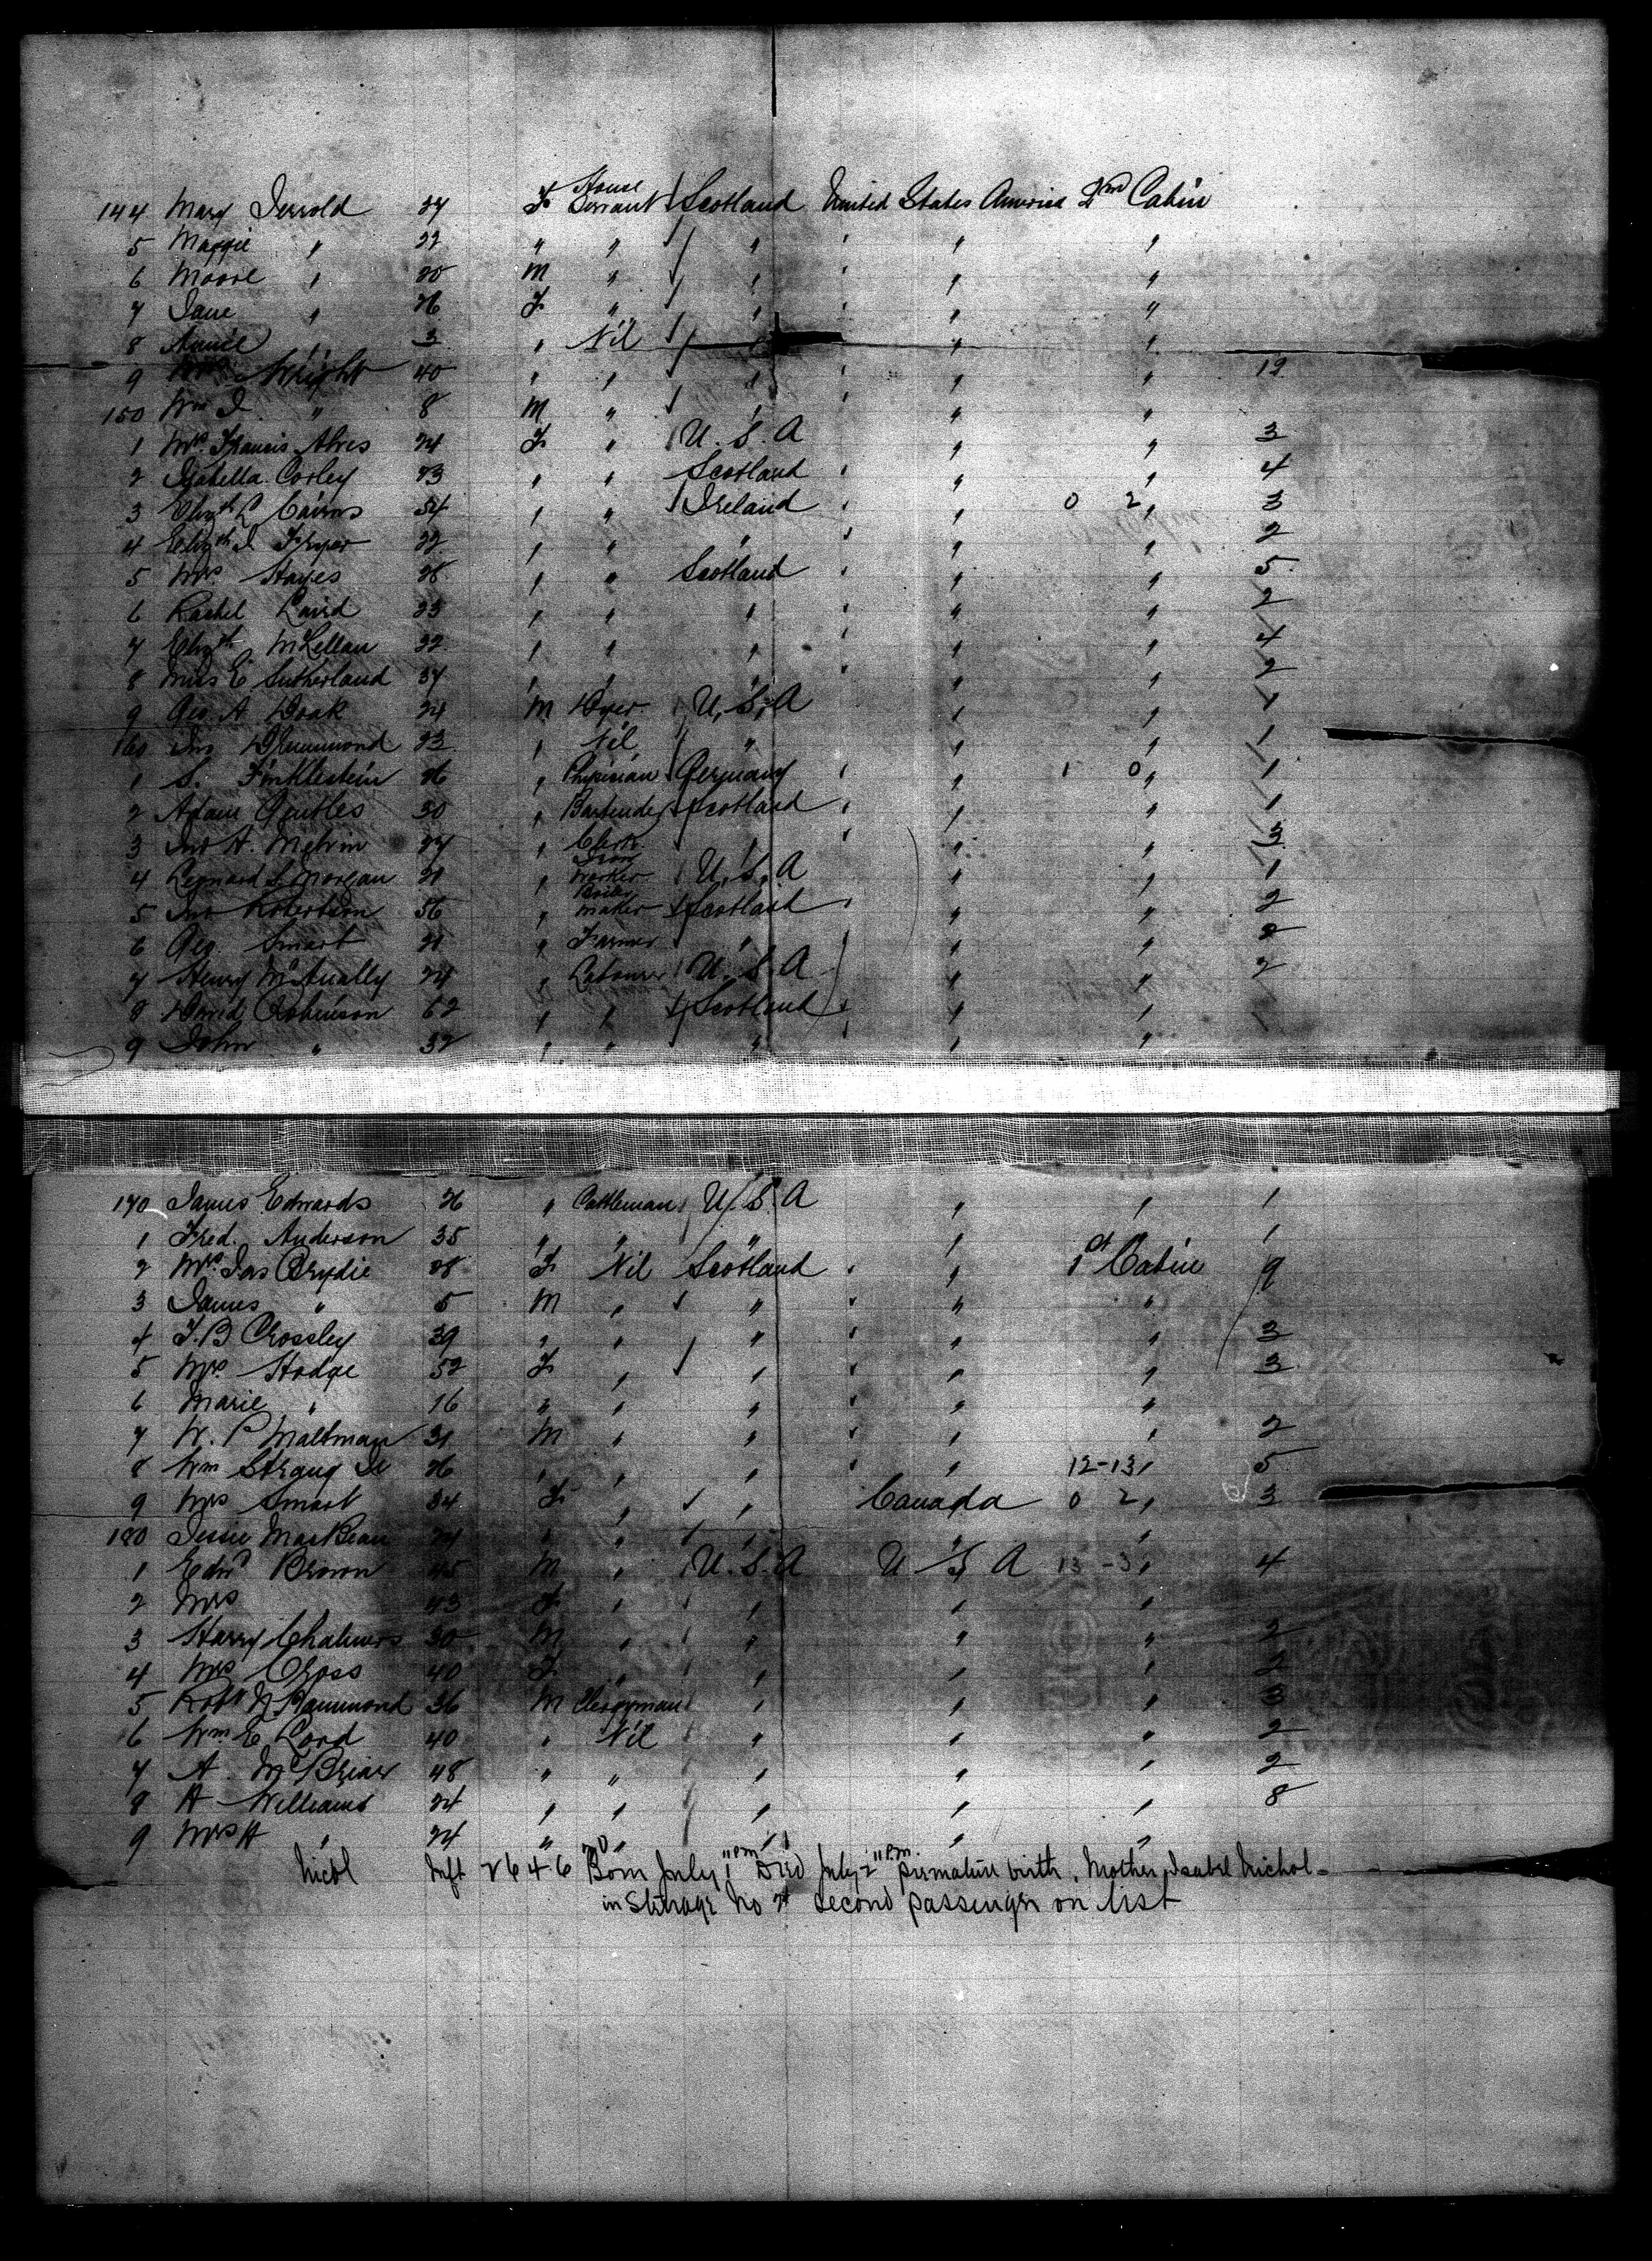 144 Mary Jerrold 27 F House Servant Scotland United States America 2nd Cabin
5 Maggie " 22 " " " " "
6 Moore " 20 M " " " "
7 Jane " 26 F " " " "
8 Annie " 3 " Nil " " "
9 Mrs Wright 40 " " " " " 12
150 Wm J. " 8 M " " " "
1 Mrs Francis Alves 24 F " U.S.A " " 3
2 Isabella Corley 23 " " Scotland " " 4
3 Elizth L Cairns 54 " " Ireland " 0 2 " 3
4 Elizth J Fryer 22 " " " " " 2
5 Mrs Hayes 28 " " Scotland " " 5
6 Rachel Laird 23 " " " " " 2
7 Elizth McLellan 32 " " " " " 4
8 Miss E Sutherland 37 " " " " " 2
9 Geo. A Doak 24 M Dyer U.S.A " " 1
160 Jno Drummond 23 " Nil " " " 1
1 S. Finklestein 26 " Physician Germany " 1 0 " 1
2 Adam Gentles 30 " Bartender Scotland " " 1
3 Jno A. Melvin 27 " Clerk " " " 3
4 Leonard S. Morgan 21 " Iron Worker U.S.A " " 1
5 Jno Robertson 56 " Boiler maker Scotland " " 2
6 Geo. Smart 21 " Farmer " " " 2
7 Henry McAnally 24 " Labourer U.S.A " " 2
8 David Robinson 62 " " Scotland " "
9 John " 32 " " " " "
170 James Edwards 26 " Cattleman U.S.A " " 1
1 Fred. Anderson 35 " " " " " 1
2 Mrs Jas Brydie 28 F Nil Scotland " 1st Cabin 9
3 James " 5 M " " " "
4 J.B Crossley 39 " " " " " 3
5 Mrs Hodge 52 F " " " " 3
6 Marie " 16 " " " " "
7 W. P Maltman 31 M " " " " 2
8 Wm Strang Jr 26 " " " " 12-13 " 5
9 Mrs Smart 34 F " " Canada 0 2 " 3
180 Jessie MacBean 24 " " " " "
1 Edwd Brown 45 M " U.S.A U S A 13-3 " 4
2 Mrs 43 F " " " "
3 Harry Chalmers 30 M " " " " 2
4 Mrs Cross 40 F " " " " 2
5 Robt N Hammond 36 M Clergyman " " " 3
6 Wm E. Lord 40 " Nil " " " 2
7 A. McBriar 48 " " " " " 2
8 A Williams 24 " " " " " 8
9 Mrs A " 24 " " " " "
Nicol Inft 2646 Born July 1 11 PM Died July 2 11 PM. premature birth. Mother, Isabel Nichol-
in Steerage No 2 second passenger on list